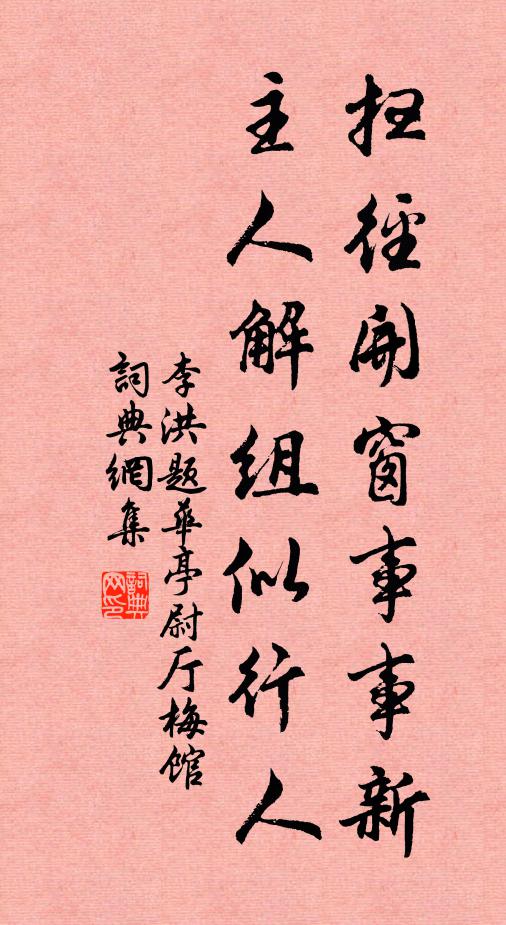 扫徑開窗事事新
主人解組似行人
李洪题華亭尉厅梅館
詞典網集
詞典网印